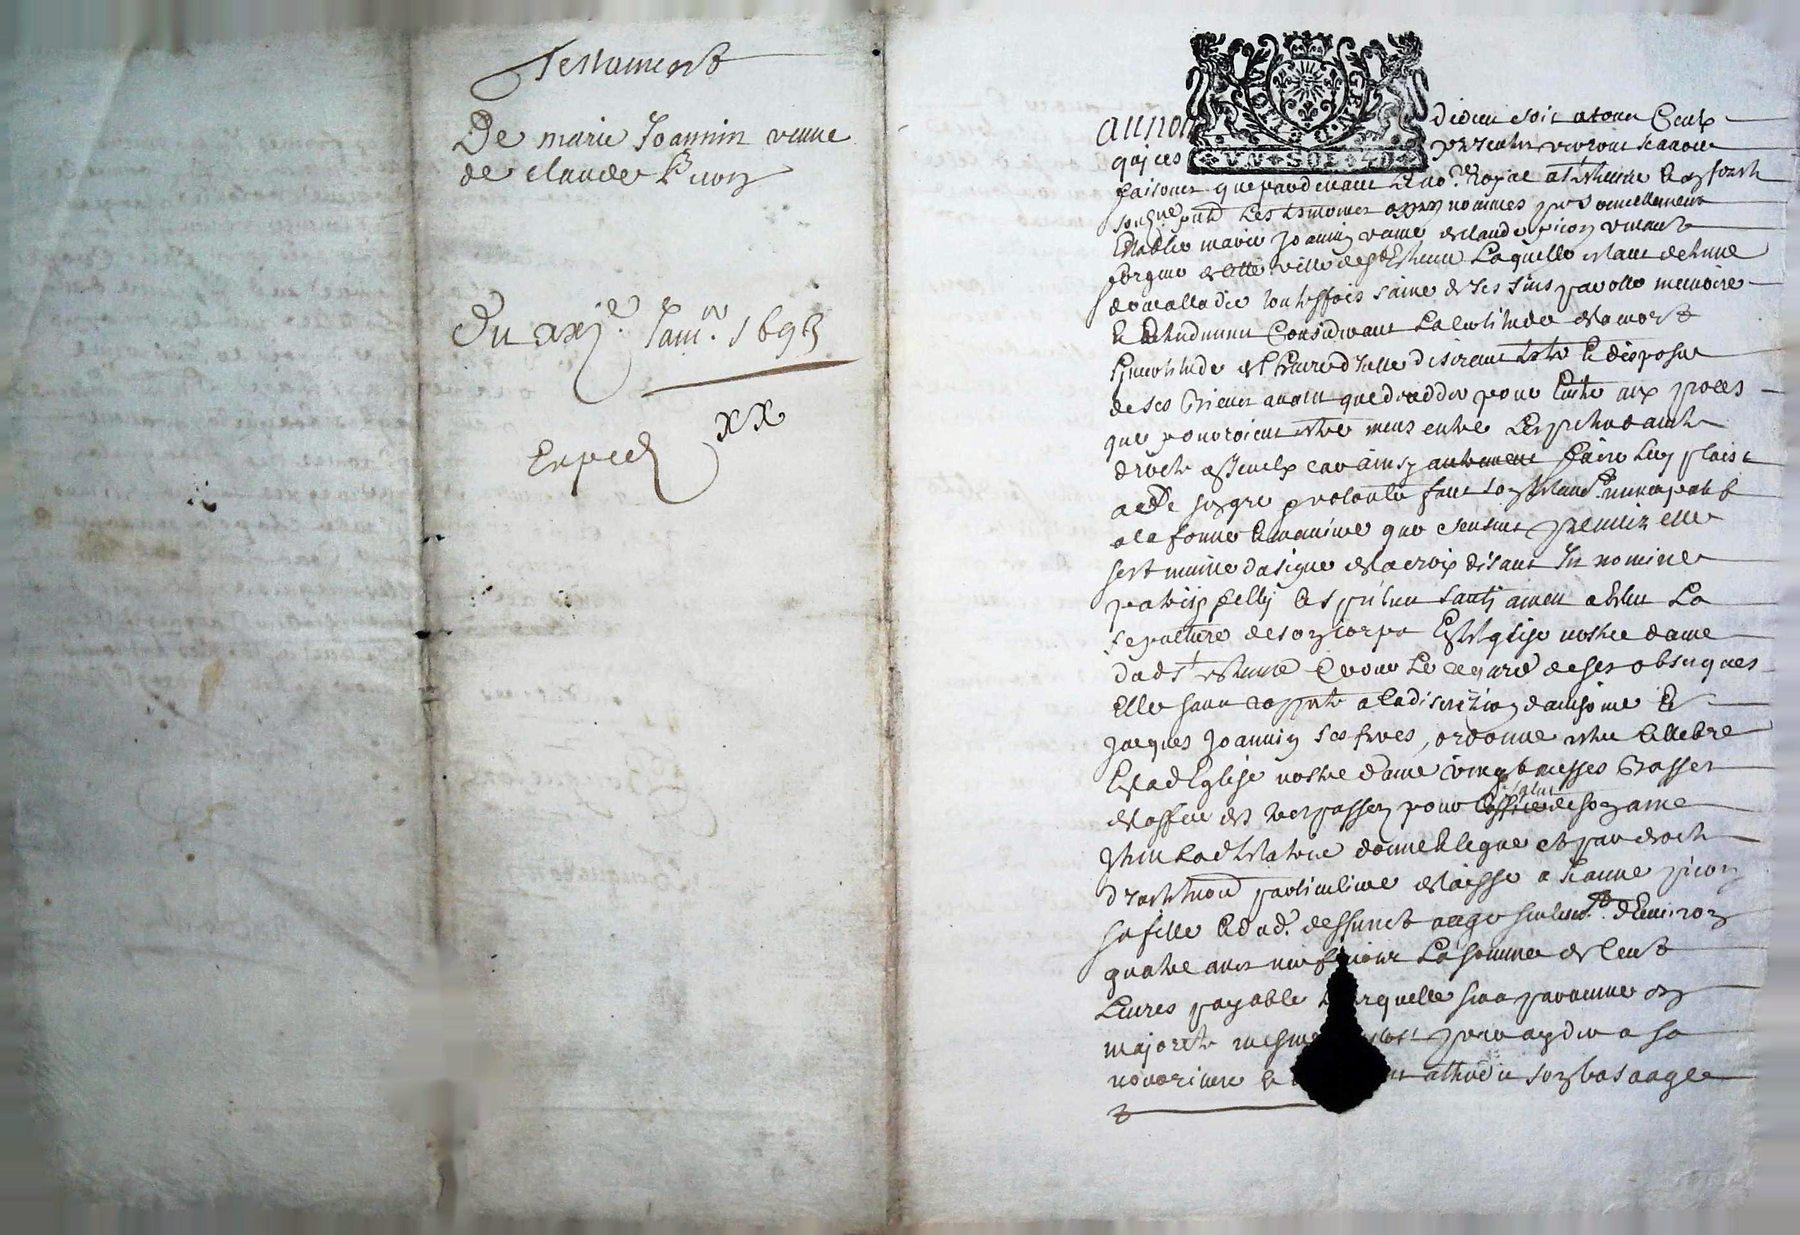 Testament
De marie Joannin veuve
de claude Picon
Du xxj.e Janv.er 1693
Exped
XX
Au nom de dieu soit a tous Ceux
qui ces presentes verront scavoir
faisons que pardevant le no.re Royal a St Estienne en forests
soubzne put les tesmoins apres nommes personnellement
Establie marie Joannin veuve de claude picon vivant
forgeur de cette ville de St Estienne Laquelle estant detenue
de malladie toutesfois saine de ses sens parolle memoire
et entendement Considerant La certitude de la mort
Lincertitude de l'heure d'icelle desirant tester et disposer
de ses biens avant que deceder pour Eviter aux proces
que pourroient estre meus entre
car ainsy faire luy plaist
a de son gre et volonte fait son testament nuncupatif
a la forme et maniere que sensuit premier elle
sest munie du signe de la croix disant In nomine
patris et filii et spiritus santi amen a Esleu La
sepulture de son corps En l'Eglise nostre dame
dud St Estienne Et pour Le regard de ses obseques
Elle sen rapporte a la discretion danthoine Et
Jacques Joannin ses freres, ordonne estre Cellebre
En lad Eglise nostre dame vingt messes Basses
de loffice des trespasses pour le salut de son ame
Item Lad testatrice donne et legue et par droit
d'institution particuliere delaisse a Jeanne picon
sa fille et dud. deffunct aage seulem.t d'Environ
quatre ans La somme de Cent
Livres payable Lorsquelle sera parvenue en
majorite pour ayder a sa
nourriture et attendu son bas aage